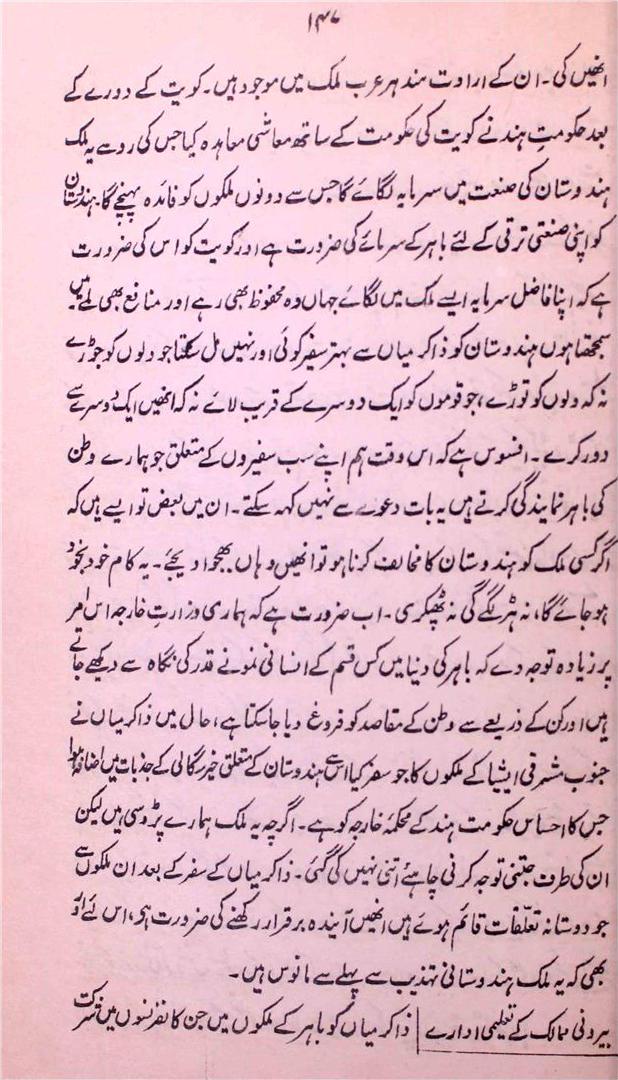 ۱۴۷
انھیں کی۔ ان کے ارادت مند ہر عرب ملک میں موجود ہیں۔ کویت کے دورے کے
بعد حکومتِ ہند نے کویت کی حکومت کے ساتھ معاشی معاہدہ کیا جس کی رو سے یہ ملک
ہندوستان کی صنعت میں سرمایہ لگائے گا جس سے دونوں ملکوں کو فائدہ پہنچے گا۔ ہندوستان
کو اپنی صنعتی ترقی کے لئے باہر کے سرمائے کی ضرورت ہے اور کویت کو اس کی ضرورت
ہے کہ اپنا فاضل سرمایہ ایسے ملک میں لگائے جہاں وہ محفوظ بھی رہے اور منافع بھی ملے۔ میں
سمجھتا ہوں ہندوستان کو ذاکر میاں سے بہتر سفیر کوئی اور نہیں مل سکتا جو دلوں کو جوڑے
نہ کہ دلوں کو توڑے، جو قوموں کو ایک دوسرے کے قریب لائے نہ کہ انھیں ایک دوسرے سے
دور کرے۔ افسوس ہے کہ اس وقت ہم اپنے سب سفیروں کے متعلق جو ہمارے وطن
کی باہر نمایندگی کرتے ہیں یہ بات دعوے سے نہیں کہہ سکتے۔ ان میں بعض تو ایسے ہیں کہ
اگر کسی ملک کو ہندوستان کا مخالف کرنا ہو تو انھیں وہاں بھجوا دیجئے۔ یہ کام خود بخود
ہو جائے گا، نہ ہڑ لگے گی نہ پھٹکری۔ اب ضرورت ہے کہ ہماری وزارتِ خارجہ اس امر
پر زیادہ توجہ دے کہ باہر کی دنیا میں کس قسم کے انسانی نمونے قدر کی نگاہ سے دیکھے جاتے
ہیں اور کن کے ذریعے سے وطن کے مقاصد کو فروغ دیا جا سکتا ہے، حال میں ذاکر میاں نے
جنوب مشرقی ایشیا کے ملکوں کا جو سفر کیا اس سے ہندوستان کے متعلق خیر سگالی کے جذبات میں اضافہ ہوا
جس کا احساس حکومت ہند کے محکمۂ خارجہ کو ہے۔ اگرچہ یہ ملک ہمارے پڑوسی ہیں لیکن
ان کی طرف جتنی توجہ کرنی چاہئے اتنی نہیں کی گئی۔ ذاکر میاں کے سفر کے بعد ان ملکوں سے
جو دوستانہ تعلّقات قائم ہوئے ہیں انھیں آیندہ برقرار رکھنے کی ضرورت ہے، اس لئے اور
بھی کہ یہ ملک ہندوستانی تہذیب سے پہلے سے مانوس ہیں۔
بیرونی ممالک کے تعلیمی ادارے | ذاکر میاں کو باہر کے ملکوں میں جن کانفرنسوں میں شرکت